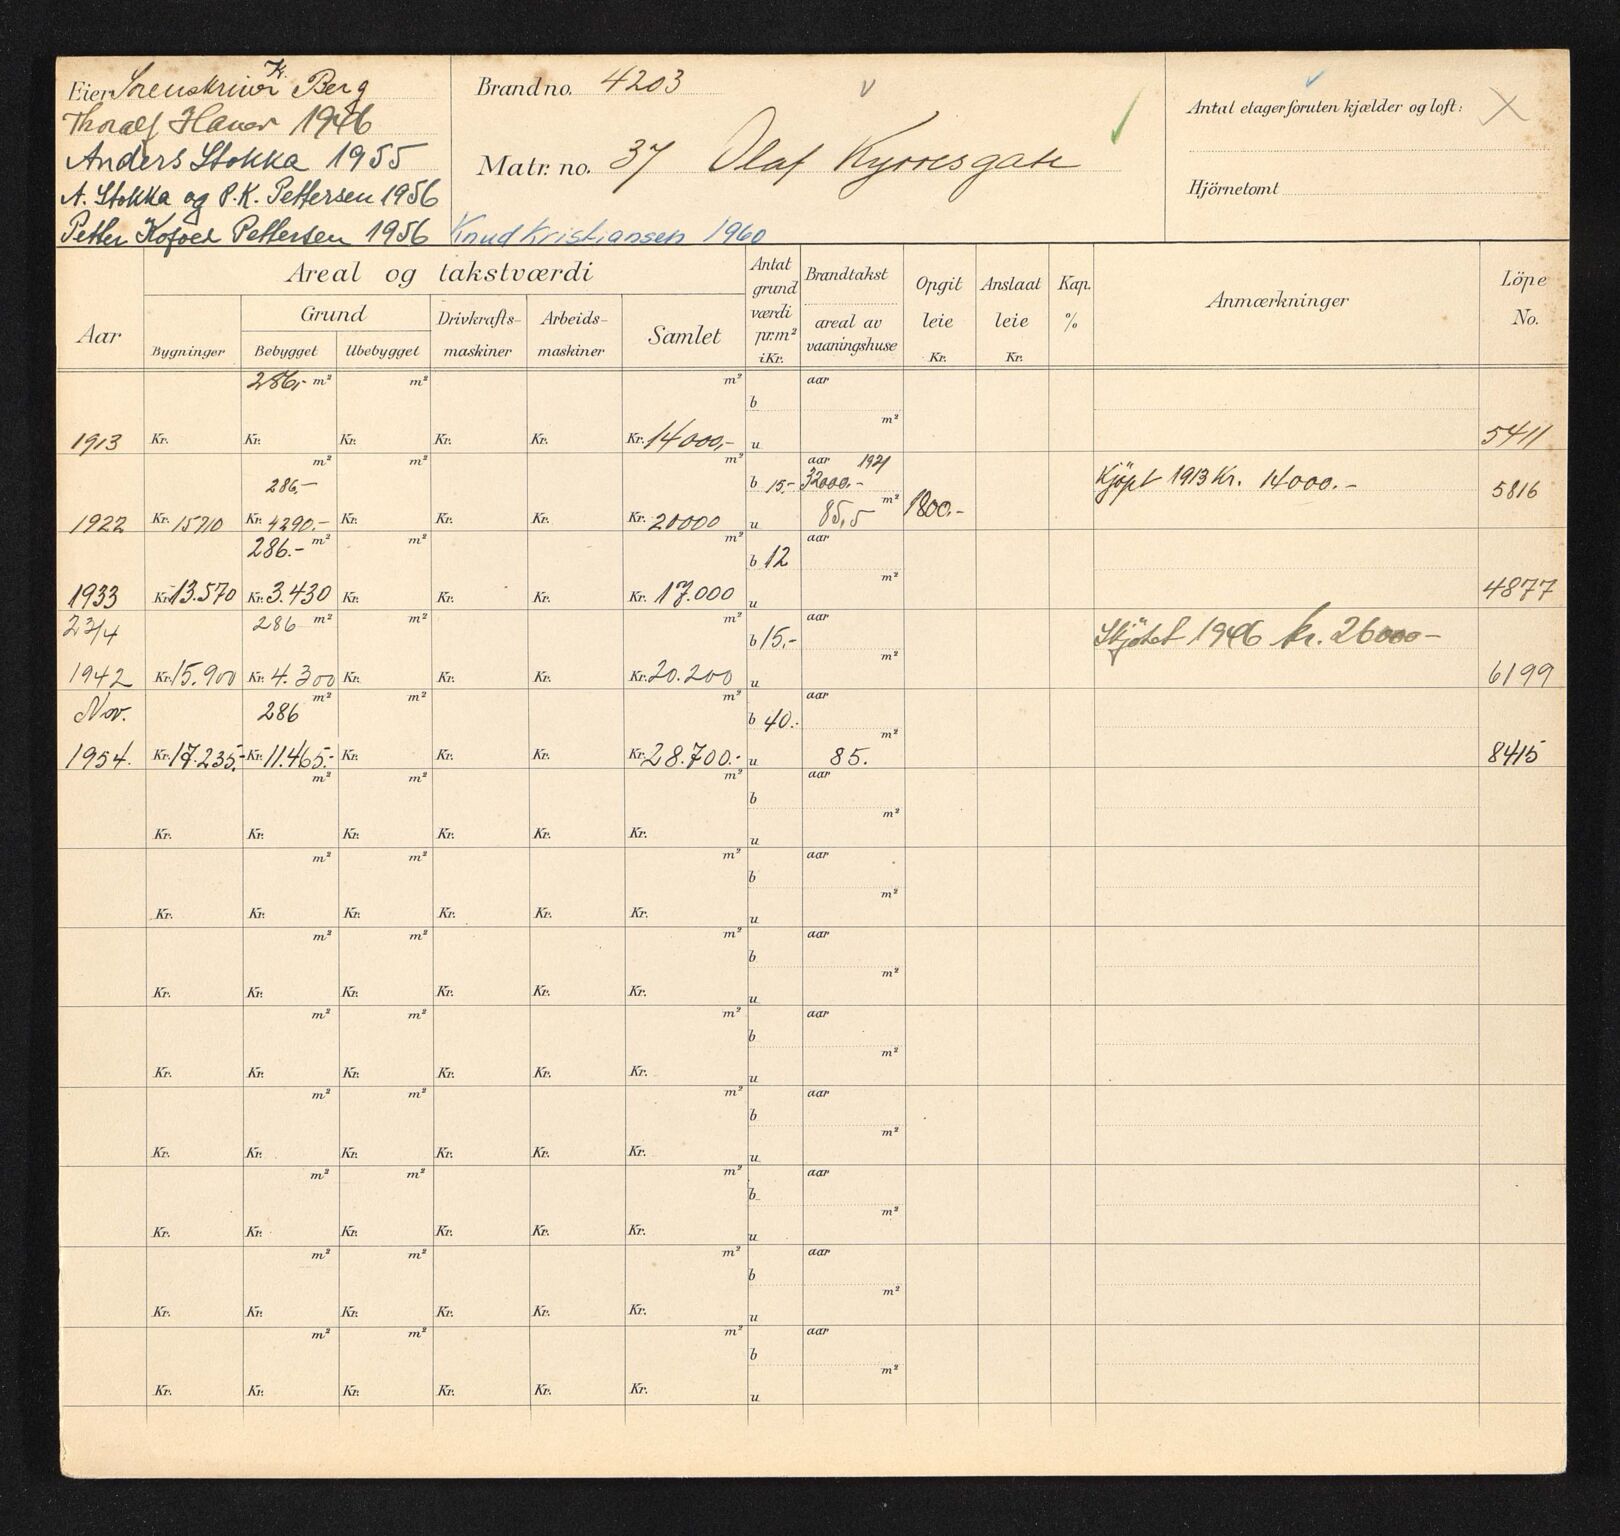 Eier Sorenskriver K. Berg
Thoralf Hauer 1946
Anders Stokka 1955
A. Stokka og P.K. Pettersen 1956
Petter Kofoed Pettersen 1956 Knud Kristiansen 1960
Brand no. 4203
Matr. no. 37 Olaf Kyrresgate
Antal etager foruten kjælder og loft:
Hjörnetomt
Areal og takstværdi
Aar
Bygninger
Grund
Bebygget Ubebygget
Drivkrafts-
maskiner
Arbeids-
maskiner
Samlet
Antat
grund
værdi
pr.m²
i Kr.
Brandtakst
areal av
vaaningshuse
Opgit
leie
Kr.
Anslaat
leie
Kr.
Kap.
%
Anmærkninger
Löpe
No.
286,- m² m² m² aar
b
m²
1913 Kr. Kr. Kr. Kr. Kr. Kr. 14000,- u 5411
m² m² m² aar 1921
286,- b 15,- 32000.- Kjöpt 1913 Kr. 14000.- 5816
m²
1922 Kr. 15710 Kr. 4290.- Kr. Kr. Kr. Kr. 20000 u 85,5 1800.-
286.- m² m² m² aar
b 12
m²
1933 Kr. 13.570 Kr. 3.430 Kr. Kr. Kr. Kr. 17.000 u 4877
23/4 286 m² m² m² aar
b 15,- Skjötet 1946 kr. 26000-
m²
1942 Kr. 15.900 Kr. 4.300 Kr. Kr. Kr. Kr. 20.200 u 6199
Nov. 286 m² m² m² aar
b 40.-
m²
1954. Kr. 17.235.- Kr. 11.465.- Kr. Kr. Kr. Kr. 28.700.- u 85. 8415
m² m² m² aar
b
m²
Kr. Kr. Kr. Kr. Kr. Kr. u
m² m² m² aar
b
m²
Kr. Kr. Kr. Kr. Kr. Kr. u
m² m² m² aar
b
m²
Kr. Kr. Kr. Kr. Kr. Kr. u
m² m² m² aar
b
m²
Kr. Kr. Kr. Kr. Kr. Kr. u
m² m² m² aar
b
m²
Kr. Kr. Kr. Kr. Kr. Kr. u
m² m² m² aar
b
m²
Kr. Kr. Kr. Kr. Kr. Kr. u
m² m² m² aar
b
m²
Kr. Kr. Kr. Kr. Kr. Kr. u
m² m² m² aar
b
m²
Kr. Kr. Kr. Kr. Kr. Kr. u